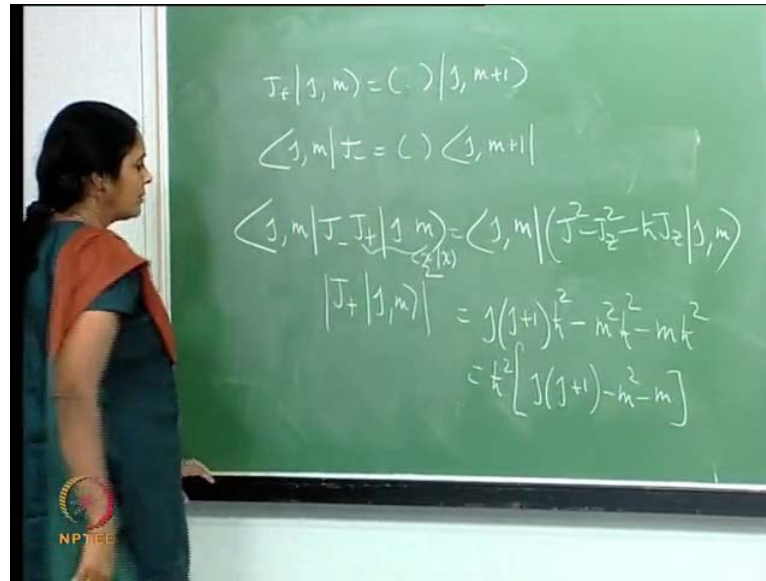 J₊|J, m⟩ = ( . )|J, m+1⟩
⟨J, m|J₋ = ( ) ⟨J, m+1|
⟨J, m|J₋ J₊|J m⟩ = ⟨J, m|(J² - J_z² - ħJ_z|J, m⟩
⟨χ|χ⟩
|J₊|J, m⟩| = J(J+1)ħ² - m²ħ² - mħ²
= ħ²[J(J+1) - m² - m]
NPTEL